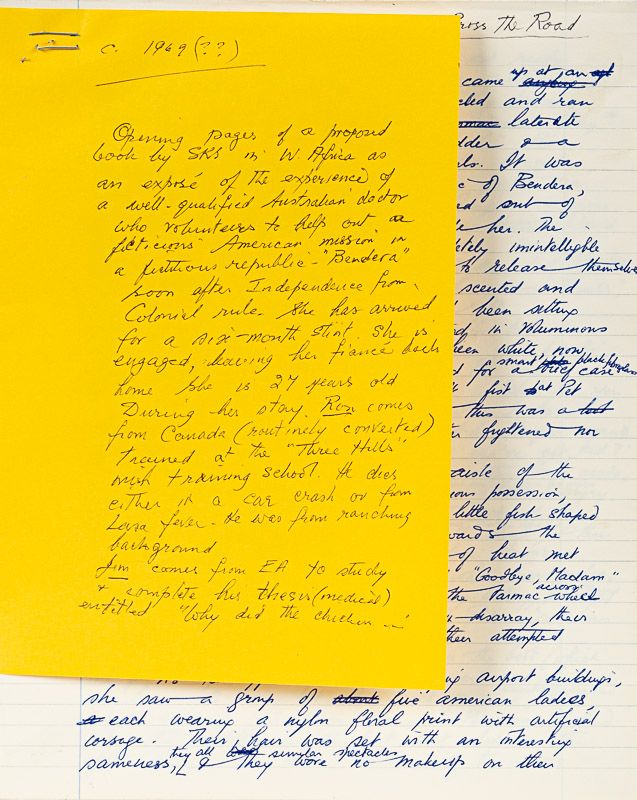 c. 1969 (??)
Opening pages of a proposed
book by SKS in W. Africa as
an exposé of the experience of
a well-qualified Australian doctor
who volunteers to help out a
ficticious American mission in
a fictitious republic - "Bendera"
soon after Independence from
Colonial rule. She has arrived
for a six-month stint she is
engaged, leaving her fiancé back
home She is 27 years old
During her stay, Ron comes
from Canada (routinely converted)
trained at the "Three Hills"
mish training school. He dies
either in a car crash or from
Lassa fever. He was from ranching
background
Jim comes from EA to study
+ complete his thesis (medical)
entitled "Why did the chicken ...."
ross The Road
came up at an
and ran
laterite
a
It was
of Bendera,
sent of
her. The
imintelligble
to release themselves
scented and
been setting
in voluminous
been white, now
smart black fibreglass
for a brief case
first sat Pet
this was a
frightened nor
aisle of the
possession,
little fish-shaped
the
of heat met
"Goodbye, Madam"
across
the tarmac
disarray, their
their attempted
airport buildings,
she saw a group of five american ladies,
each wearing a nylon floral print with artificial
corsage. Their hair was set with an interesting
they all similar spectacles
sameness, & they wore no makeup on their